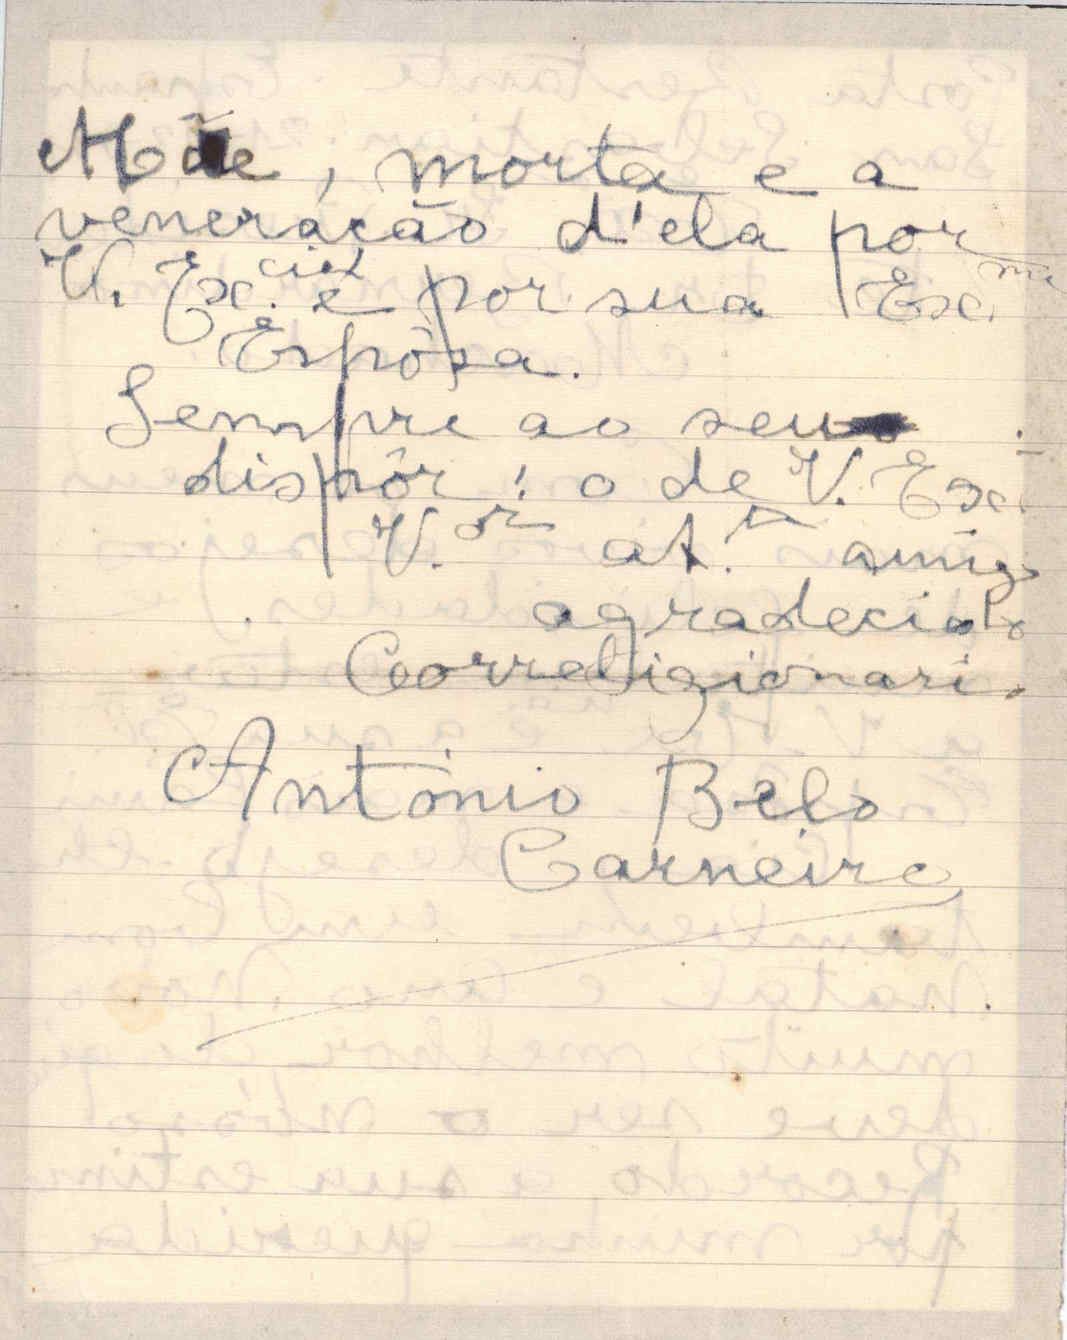 Mãe, morta e a
veneração d'ela por
V. Ex.cia e por sua Ex.ma
Espôsa.
Sempre ao seu
dispôr: o de V. Ex.
V.or at.º amigo
agradecido
Correligionari.
António Belo
Carneiro